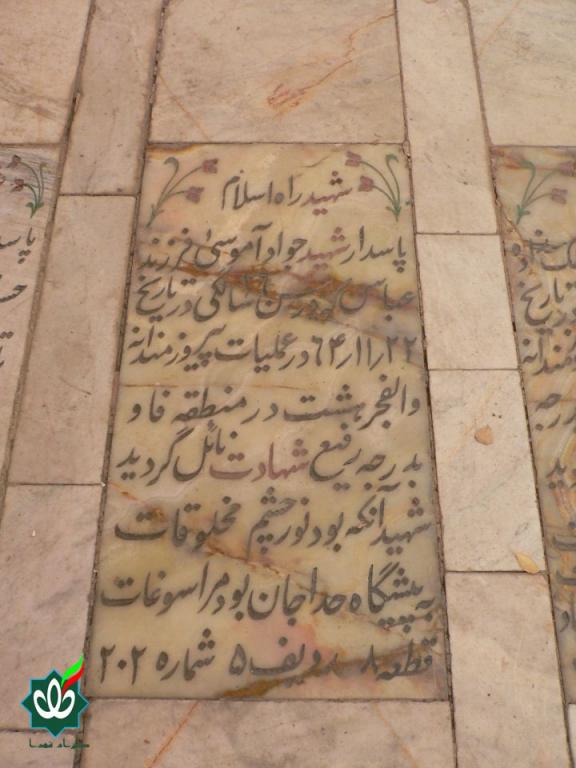 شهید راه اسلام
پاسدار شهید جواد آموسیٰ فرزند
عباس که در سن سالگی در تاریخ
۶۴/۱۱/۲۲ در عملیات پیروزمندانه
والفجر هشت در منطقه فاو
بدرجه رفیع شهادت نائل گردید
شهید آنکه بود نور چشم مخلوقات
به پیشگاه خدا جان بود مرا سوغات
قطعه ۸ ردیف ۵ شماره ۲۰۲